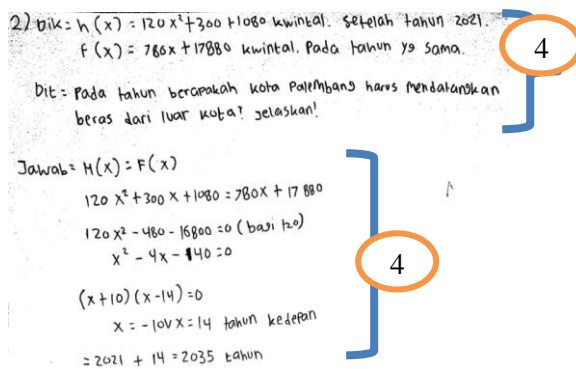 2) Dik = h(x) = 120 x² + 300 + 1080 kwintal. setelah tahun 2021.
f(x) = 780x + 17880 kwintal. Pada tahun yg sama.
4
Dit = Pada tahun berapakah kota Palembang harus mendatangkan
beras dari luar kota? jelaskan!
Jawab = H(x) = F(x)
120 x² + 300 x + 1080 = 780x + 17 880
120 x² - 480 - 16800 = 0 (bagi 120)
x² - 4x - 140 = 0
4
(x+10) (x-14) = 0
x = -10 V x = 14 tahun kedepan
= 2021 + 14 = 2035 tahun